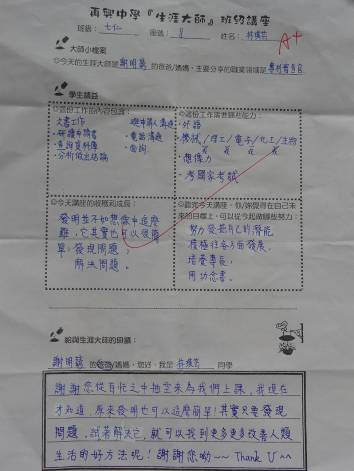 再興中學『生涯大師』班級講座
班級：七仁 座號：8 姓名：林
A+
大師小檔案
◎今天的生涯大師是謝明 的爸爸/媽媽，主要分享的職業領域是專利審查官
學生講義
◎這份工作的內容包含：
文書工作
・研讀申請書
・查詢資料庫
・分析做出結論
跟申請人溝通
・電話溝通
・面詢
◎這份工作需要哪些能力：
・外語
・學識/理工/電子/化工/生物
・想像力
・考國家考試
◎今天講座的收穫和成長：
發明並不如想像中這麼
難，它其實也可以很簡
單：發現問題，
解決問題。
◎聽完今天講座，你/妳覺得在自己未
來的目標上，可以從今起做哪些努力：
努力發掘自己的潛能，
積極往各方面發展，
培養專長，
用功念書。
給與生涯大師的回饋：
謝明 的爸爸/媽媽，您好，我是林 同學
謝謝您從百忙之中抽空來為我們上課，我現在
才知道，原來發明也可以這麼簡單！其實只要發現
問題，試著解決它，就可以找到更多更多改善人類
生活的好方法呢！謝謝您呦~~ Thank U